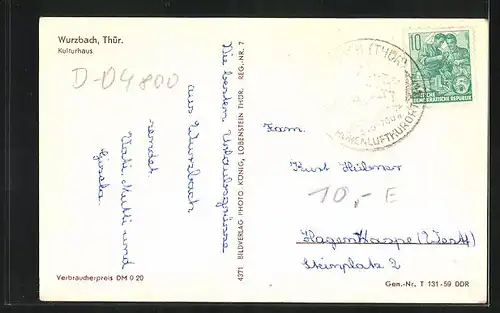 Wurzbach, Thür.
Kulturhaus
D-04800
Die besten Urlaubsgrüsse
aus Wurzbach
sendet
Vati, Mutti und
Gisela.
Verbraucherpreis DM 0 20
4371 BILDVERLAG PHOTO KÖNIG, LOBENSTEIN THÜR. REG.-NR. 7
(THÜR)
HÖHENLUFTKURORT
10
DEUTSCHE
DEMOKRATISCHE REPUBLIK
Fam.
Kurt Hübner
10,- E
Hagen Haspe (Westf)
Steinplatz 2
Gen.-Nr. T 131-59 DDR